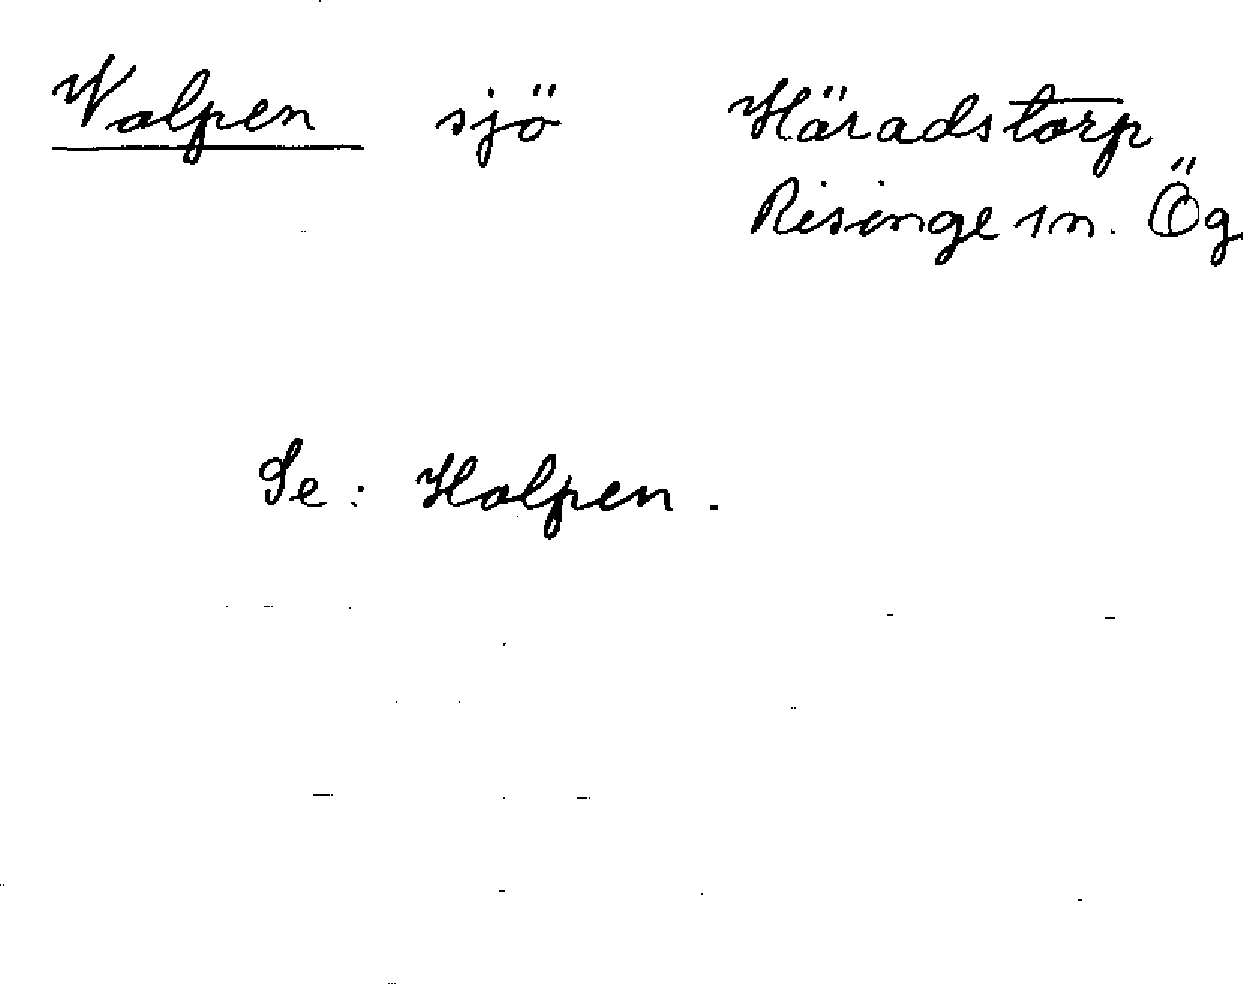 Valpen sjö Häradstorp
Risinge sn. Ög.
Se: Halpen.